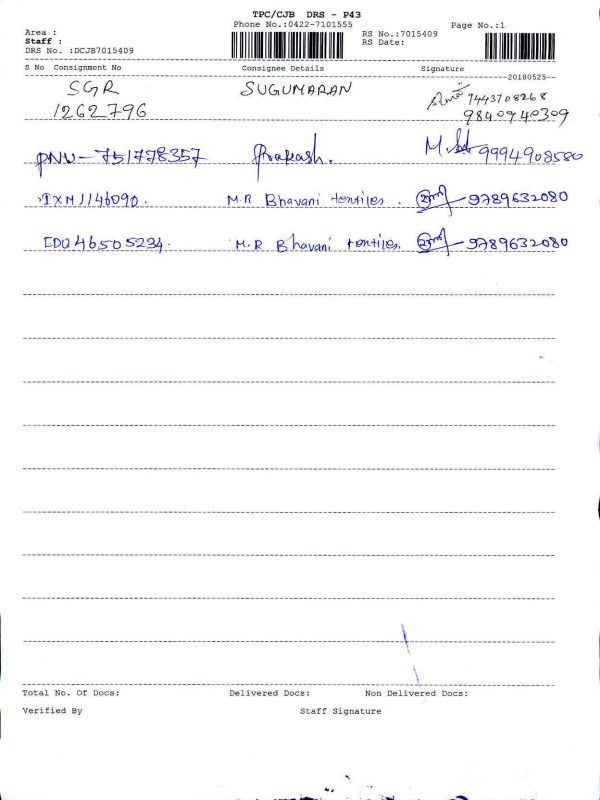 TPC/CJB DRS - P43
Phone No.:0422-7101555
Page No.:1
Area :
Staff :
DRS No. :DCJB7015409
RS No.:7015409
RS Date:
S No Consignment No Consignee Details Signature
20180525
SGR SUGUMARAN 9443708268
1262796 9840940309
PNU-751778357 Prakash. 9994908580
IXM1146090. M.R Bhavani textiles. 9789632080
IDQ46505234. M.R Bhavani textiles. 9789632080
Total No. Of Docs: Delivered Docs: Non Delivered Docs:
Verified By Staff Signature